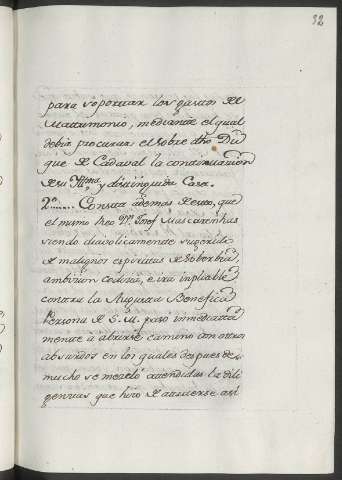 32
para soportar los gastos del
Matrimonio, mediante el qual
debia procurar el sobre dho Du
que de Cadaval la continuacion
de su Illma. y distinguida Casa.
2º...... Consta ademas de esto, que
el mismo Reo Dn. Josef Mascareñas
siendo diavolicamente sugerido
de malignos espiritus de soberbia,
ambicion codicia, e ira inpliable
contra la Augusta Benefica
Persona de S.M. paso inmediata
mente à abrirse camino con otros
absurdos en los quales despues de
mucho se mezcló atendidas las dili
gencias que hizo de atraerse así